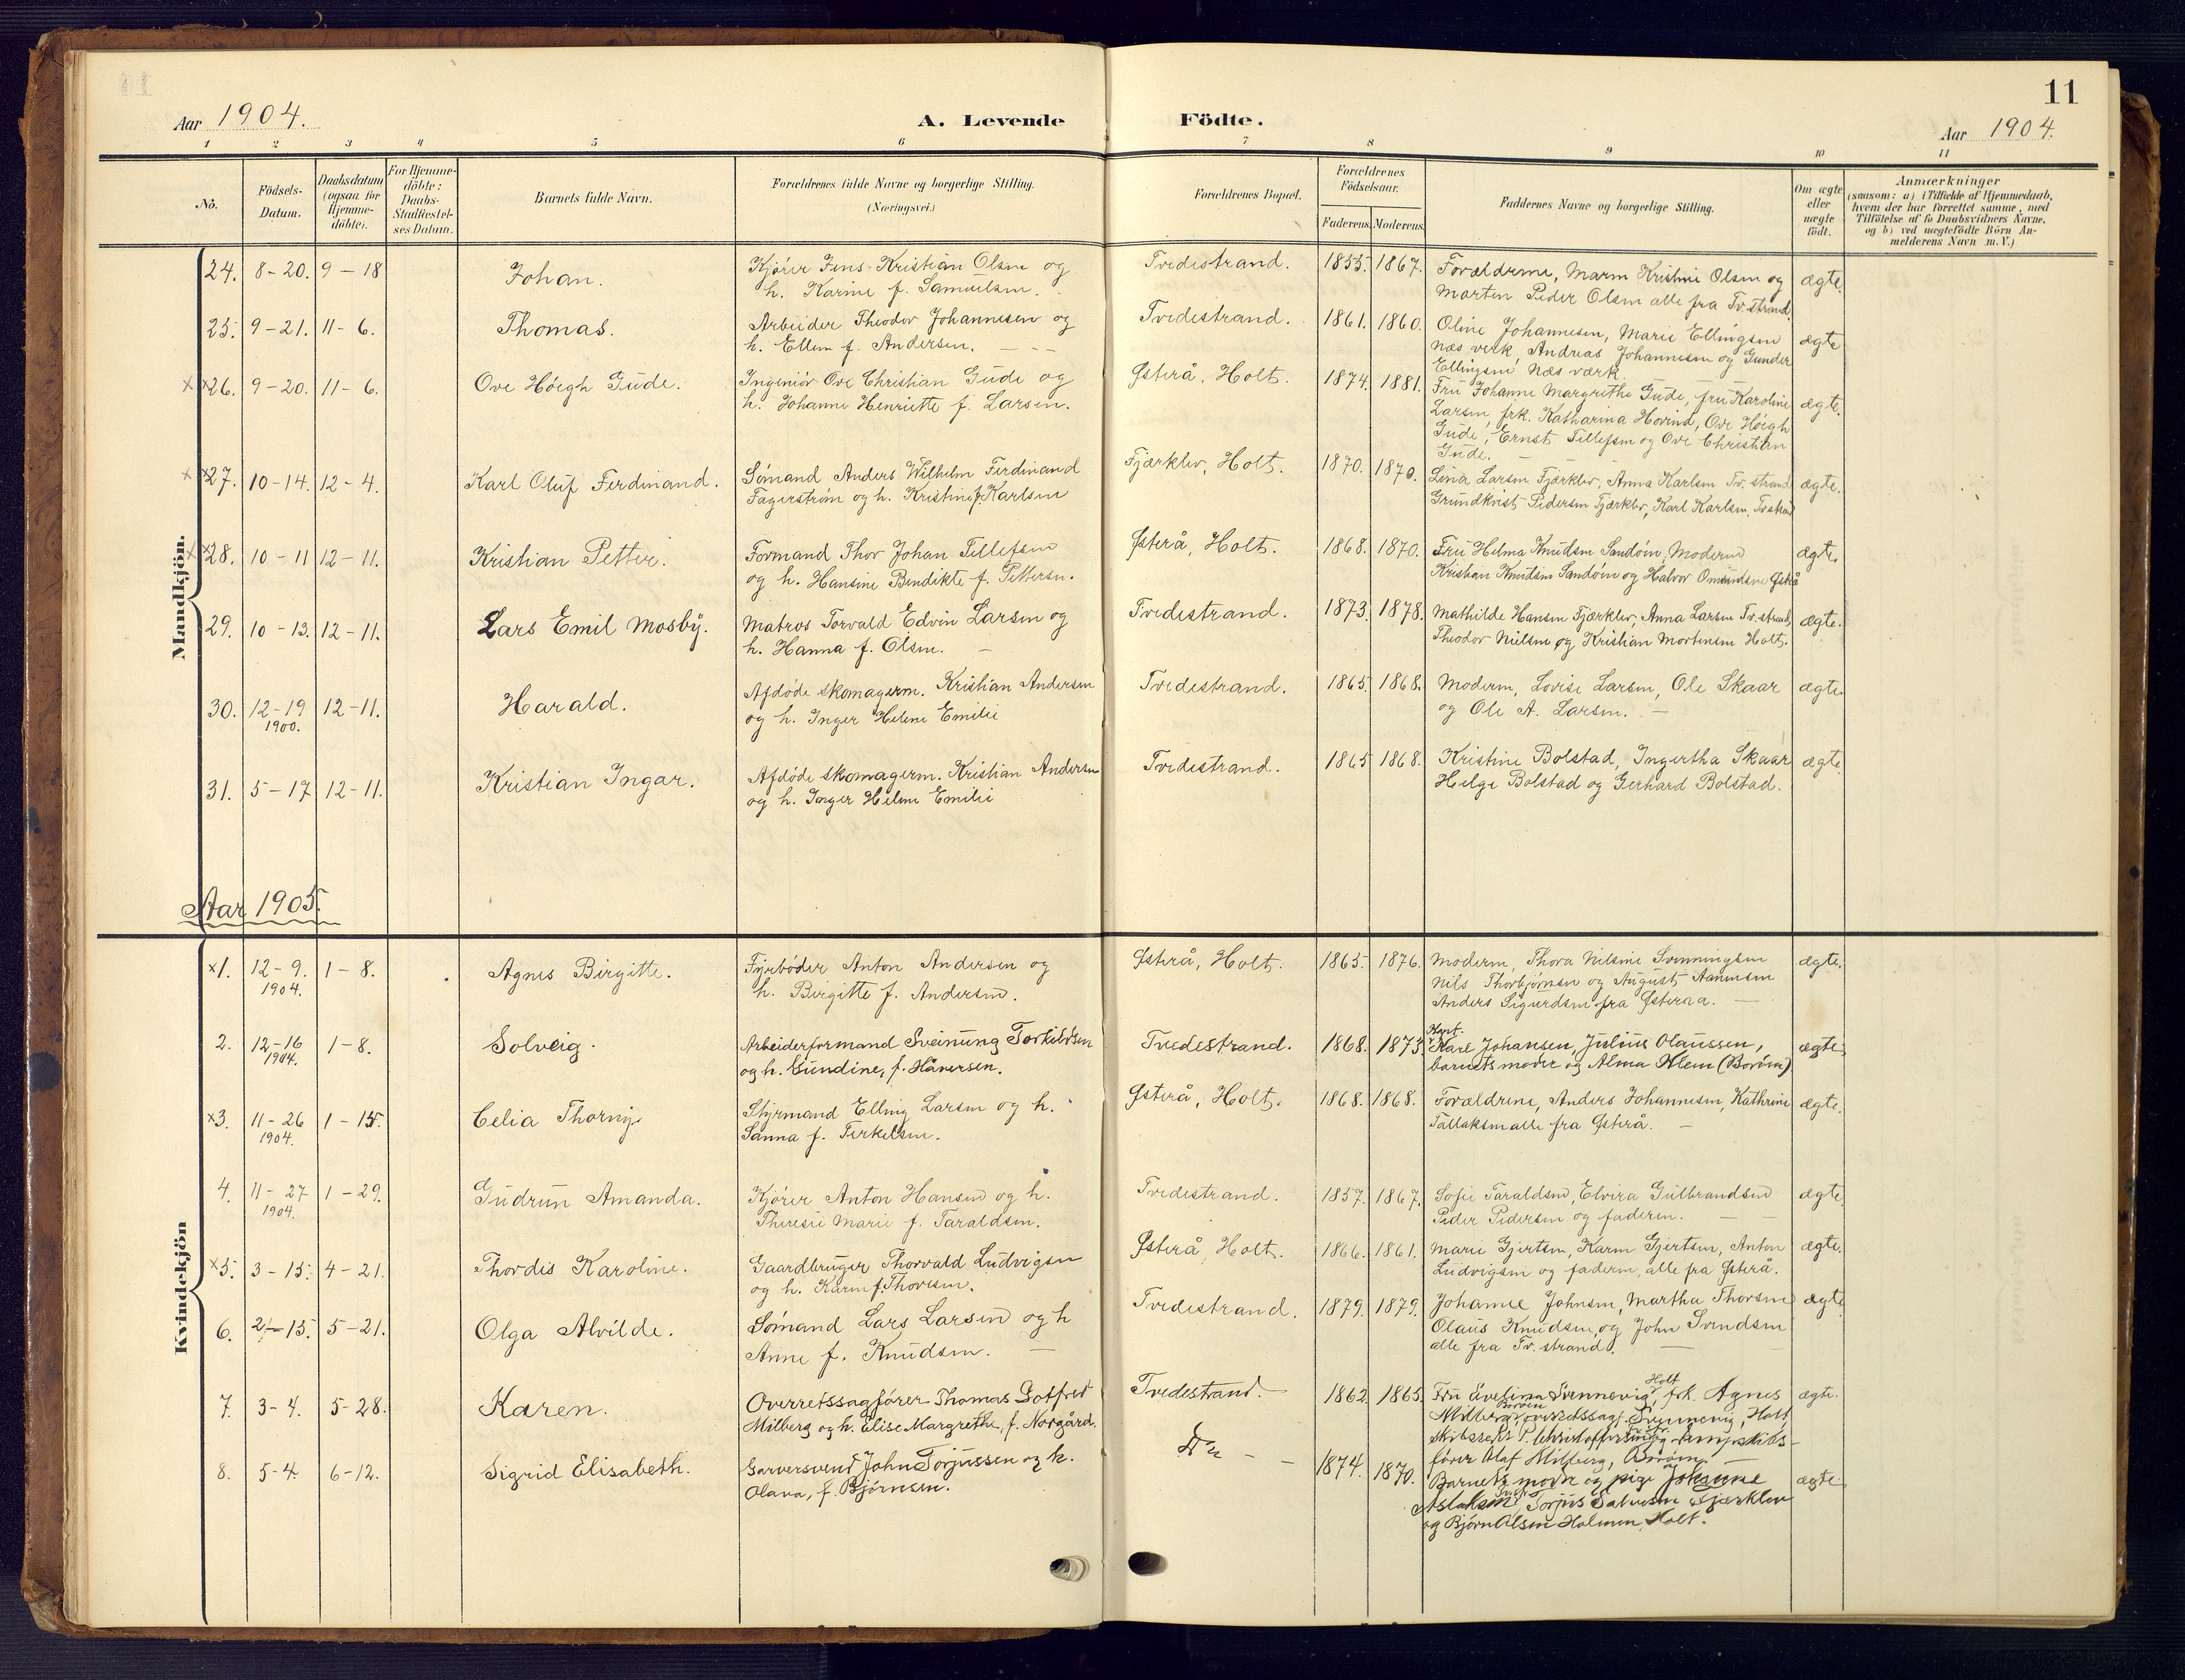 11
Aar 1904.
A. Levende Födte.
Aar 1904.
1 2 3 4 5 6 7 8 9 10 11
No.
Födsels-Datum.
Daabsdatum (ogsaa for Hjemme-döbte).
For Hjemme-döbte: Daabs-Stadfæstel-ses Datum.
Barnets fulde Navn.
Forældrenes fulde Navne og borgerlige Stilling. (Næringsvei.)
Forældrenes Bopæl.
Forældrenes Födselsaar.
Faderens. Moderens.
Faddernes Navne og borgerlige Stilling.
Om ægte eller uægte födt.
Anmærkninger
(saasom: a) i Tilfælde af Hjemmedaab,
hvem der har forrettet samme, med
Tilföielse af to Daabsvidners Navne,
og b) ved uægtefödte Börn An-
melderens Navn m. V.)
Mandkjön.
24. 8-20. 9-18 Johan. Kjører Jens Kristian Olsen og Tvedestrand. 1855. 1867. Forældrene, Maren Kristine Olsen og ægte.
h. Karine f. Samuelsen. Morten Peder Olsen alle fra Tv.strand.
25. 9-21. 11-6. Thomas. Arbeider Theodor Johannesen og Tvedestrand. 1861. 1860. Oline Johannesen, Marie Ellingsen ægte
h. Ellen f. Andersen. Næs verk, Andreas Johannesen og Gunder
Ellingsen Næs værk.
x x26. 9-20. 11-6. Ove Höegh Gude. Ingeniör Ove Christian Gude og Østerå, Holt. 1874. 1881. Fru Johanne Margrethe Gude, fru Karoline ægte.
h. Johanne Henriette f. Larsen. Larsen, frk. Katharina Hovind, Ove Höegh
Gude, Ernst Tellefsen og Ove Christian
Gude.
x x27. 10-14. 12-4. Karl Oluf Ferdinand. Sömand Anders Wilhelm Ferdinand Fjærklev, Holt. 1870. 1870. Lina Larsen Fjærklev, Anna Karlsen Tv. strand ægte.
Fagerström og h. Kristine f. Karlsen Grundkvist Pedersen Fjærklev, Karl Karlsen, Tv.strand
x x28. 10-11 12-11. Kristian Petter. Formand Thor Johan Tellefsen Østerå, Holt. 1868. 1870. Fru Helma Knudsen Sandöen, Moderen ægte.
og h. Hansine Bendikte f. Pettersn. Kristian Knudsen Sandöen og Halvor Omundsen Østerå
29. 10-13. 12-11. Lars Emil Mosby. Matros Torvald Edvin Larsen og Tvedestrand. 1873. 1878. Mathilde Hansen Fjærklev, Anna Larsen Tv. strand, ægte.
h. Hanna f. Olsen. Theodor Nielsen og Kristian Mortensen Holt.
30. 12-19 1900. 12-11. Harald. Afdöde skomagerm. Kristian Andersen Tvedestrand. 1865. 1868. Moderen, Lovise Larsen, Ole Skaar ægte.
og h. Inger Helene Emilie og Ole A. Larsen.
31. 5-17 12-11. Kristian Ingar. Afdöde skomagerm. Kristian Andersen Tvedestrand. 1865 1868. Kristine Bolstad, Ingertha Skaar ægte.
og h. Inger Helene Emilie Helge Bolstad og Gerhard Bolstad.
Aar 1905.
Kvindekjön
x1. 12-9. 1904. 1-8. Agnes Birgitte. Fyrböder Anton Andersen og Østerå, Holt. 1865. 1876. Moderen, Thora Nilsine Svenningsen ægte.
h. Birgitte f. Andersen. Nils Thorbjörnsen og August Aanensen
Anders Sigurdsen fra Østeraa.
2. 12-16 1904. 1-8. Solveig. Arbeiderformand Sveinung Torkildsen Tvedestrand. 1868. 1873. Karl Johansen, Julius Olaussen, ægte.
og h. Gundine, f. Håversen. barnets moder og Alma Klem (Boröen)
x3. 11-26 1904. 1-15. Celia Thorny. Styrmand Elling Larsen og h. Østerå, Holt. 1868. 1868. Forældrene, Anders Johannesen, Kathrine ægte.
Sanna f. Terkelsen. Tallaksen alle fra Østerå.
4. 11-27 1904. 1-29. Gudrun Amanda. Kjører Anton Hansen og h. Tvedestrand. 1857. 1867. Sofie Taraldsen, Elvira Gulbrandsen ægte
Theresie Marie f. Taraldsen. Peder Pedersen og faderen.
x5. 3-15. 4-21. Thordis Karoline. Gaardbruger Thorvald Ludvigsen Østerå, Holt. 1866. 1861. Marie Gjertsen, Karen Gjertsen, Anton ægte.
og h. Karen f. Thorsen. Ludvigsen og faderen, alle fra Østerå.
6. 2-15. 5-21. Olga Alvilde. Sömand Lars Larsen og h Tvedestrand. 1879. 1879. Johanne Johnsen, Martha Thorsen ægte
Anne f. Knudsen. Olaus Knudsen, og John Svendsen
alle fra Tv. strand.
7. 3-4. 5-28. Karen. Overretssagfører Thomas Gotfred Tvedestrand. 1862. 1865. Fru Evelina Svennevig, Holt frk. Agnes ægte.
Milberg og h. Elise Margrethe, f. Norgård. Milberg, Boröen overretssagf. Svennevig, Holt,
skibsreder P. Christoffersen, og dampskibs-
fører Olaf Milberg, Boröen.
8. 5-4. 6-12. Sigrid Elisabeth. Garversvend John Torjussen og h. Do 1874. 1870. Barnets moder og pige Johanne ægte.
Olava, f. Björnsen. Aslaksen, Torjus Salvesen Fjærklev
og Björn Olsen Holmen, Holt.